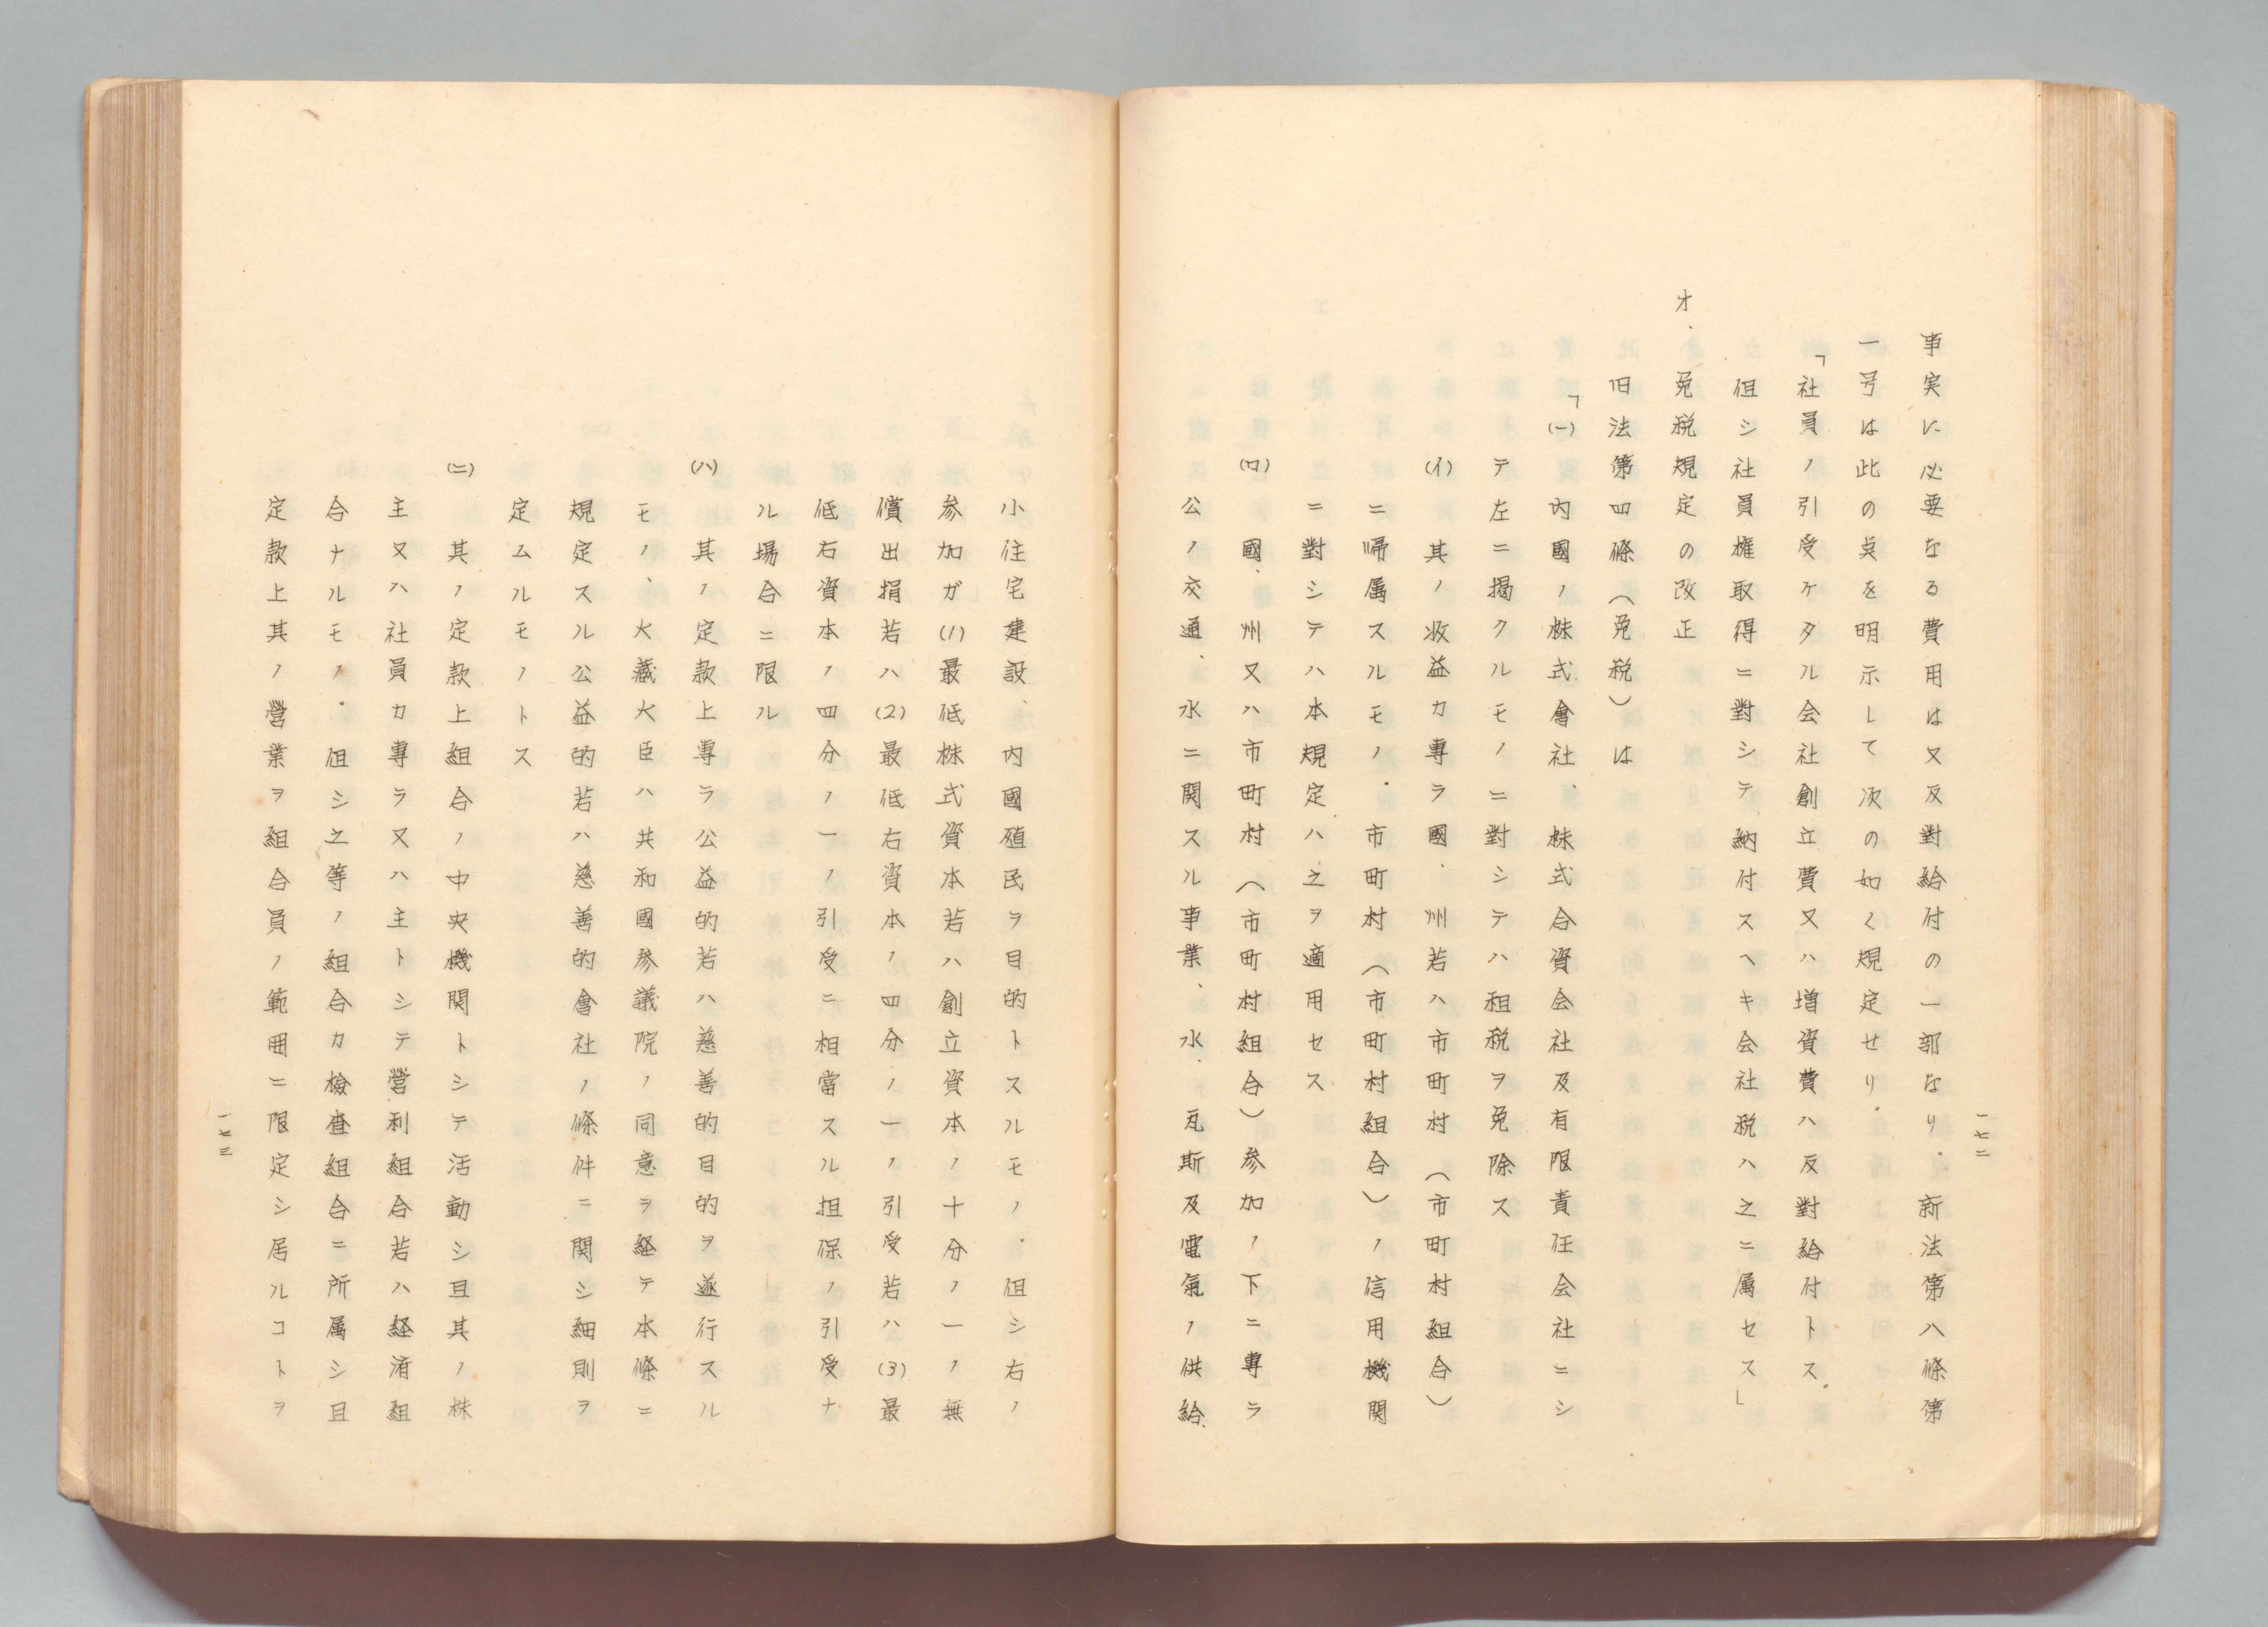 事実に必要なる費用は又反對給付の一部なり．新法第八條第
一号は此の点を明示して次の如く規定せり．
「社員ノ引受ケタル会社創立費又ハ増資費ハ反對給付トス．
但シ社員権取得ニ對シテ納付スヘキ会社税ハ之ニ属セス」
オ．免税規定の改正
旧法第四條（免税）は
「(一)内國ノ株式會社、株式合資会社及有限責任会社ニシ
テ左ニ掲クルモノニ對シテハ租税ヲ免除ス
(イ)其ノ收益カ專ラ國．州若ハ市町村（市町村組合）
ニ帰属スルモノ．市町村（市町村組合）ノ信用機関
ニ對シテハ本規定ハ之ヲ適用セス
(ロ)國、州又ハ市町村（市町村組合）参加ノ下ニ專ラ
公ノ交通、水ニ関スル事業、水．瓦斯及電氣ノ供給．
一七二
小住宅建設、内國殖民ヲ目的トスルモノ．但シ右ノ
参加ガ(1)最低株式資本若ハ創立資本ノ十分ノ一ノ無
償出捐若ハ(2)最低右資本ノ四分ノ一ノ引受若ハ(3)最
低右資本ノ四分ノ一ノ引受ニ相當スル担保ノ引受ナ
ル場合ニ限ル
(ハ)其ノ定款上專ラ公益的若ハ慈善的目的ヲ遂行スル
モノ、大藏大臣ハ共和國参議院ノ同意ヲ経テ本條ニ
規定スル公益的若ハ慈善的會社ノ條件ニ関シ細則ヲ
定ムルモノトス
(ニ)其ノ定款上組合ノ中央機関トシテ活動シ且其ノ株
主又ハ社員カ專ラ又ハ主トシテ営利組合若ハ経済組
合ナルモノ．但シ之等ノ組合カ檢査組合ニ所属シ且
定款上其ノ營業ヲ組合員ノ範囲ニ限定シ居ルコトヲ
一七三